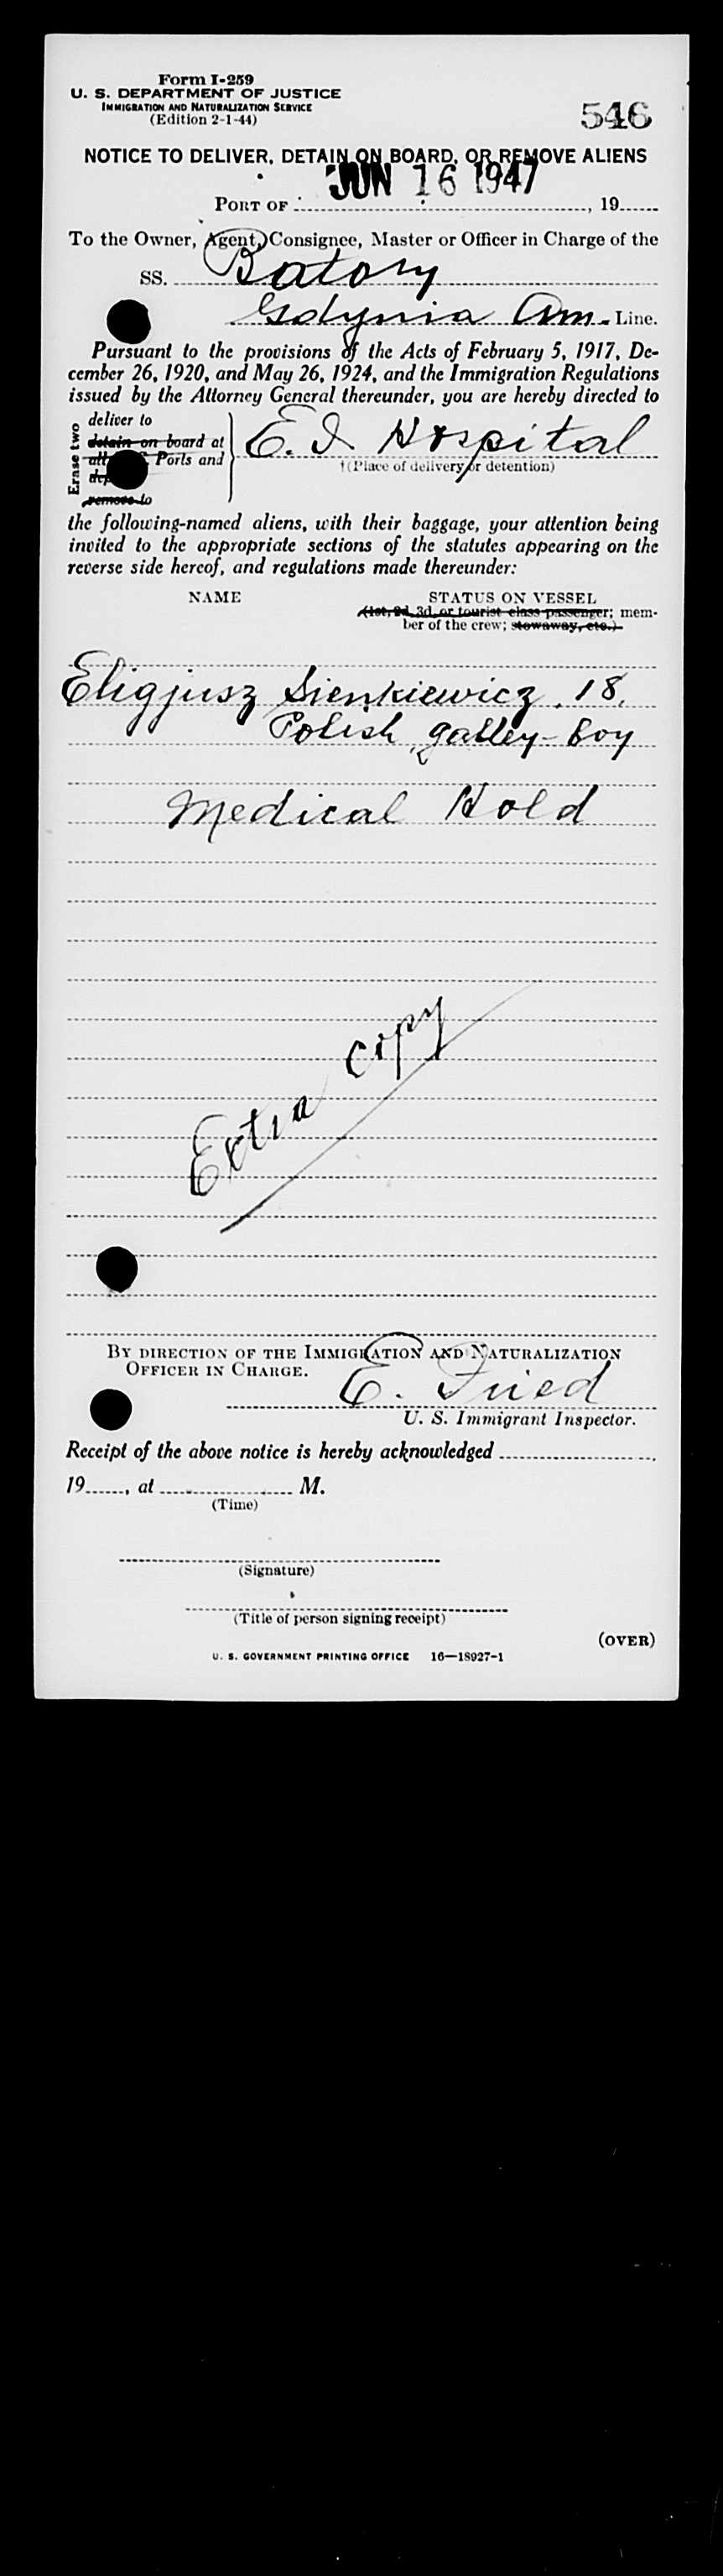 Form I-259
U. S. DEPARTMENT OF JUSTICE
IMMIGRATION AND NATURALIZATION SERVICE
(Edition 2-1-44)
546
NOTICE TO DELIVER, DETAIN ON BOARD, OR REMOVE ALIENS
JUN 16 1947
PORT OF ........, 19......
To the Owner, Agent, Consignee, Master or Officer in Charge of the
SS. Batory
Gdynia Am. Line.
Pursuant to the provisions of the Acts of February 5, 1917, De-
cember 26, 1920, and May 26, 1924, and the Immigration Regulations
issued by the Attorney General thereunder, you are hereby directed to
Erase two
deliver to
detain on board at
all Ports and
remove to
E. I. Hospital
(Place of delivery or detention)
the following-named aliens, with their baggage, your attention being
invited to the appropriate sections of the statutes appearing on the
reverse side hereof, and regulations made thereunder:
NAME STATUS ON VESSEL
(1st, 2d, 3d, or tourist class passenger; mem-
ber of the crew; stowaway, etc.)
Eligjusz Sienkiewicz, 18,
Polish, galley-boy
Medical Hold
Extra copy
BY DIRECTION OF THE IMMIGRATION AND NATURALIZATION
OFFICER IN CHARGE.
E. Fried
U. S. Immigrant Inspector.
Receipt of the above notice is hereby acknowledged ........,
19......, at ........ M.
(Time)
(Signature)
(Title of person signing receipt)
(OVER)
U. S. GOVERNMENT PRINTING OFFICE 16—18927-1